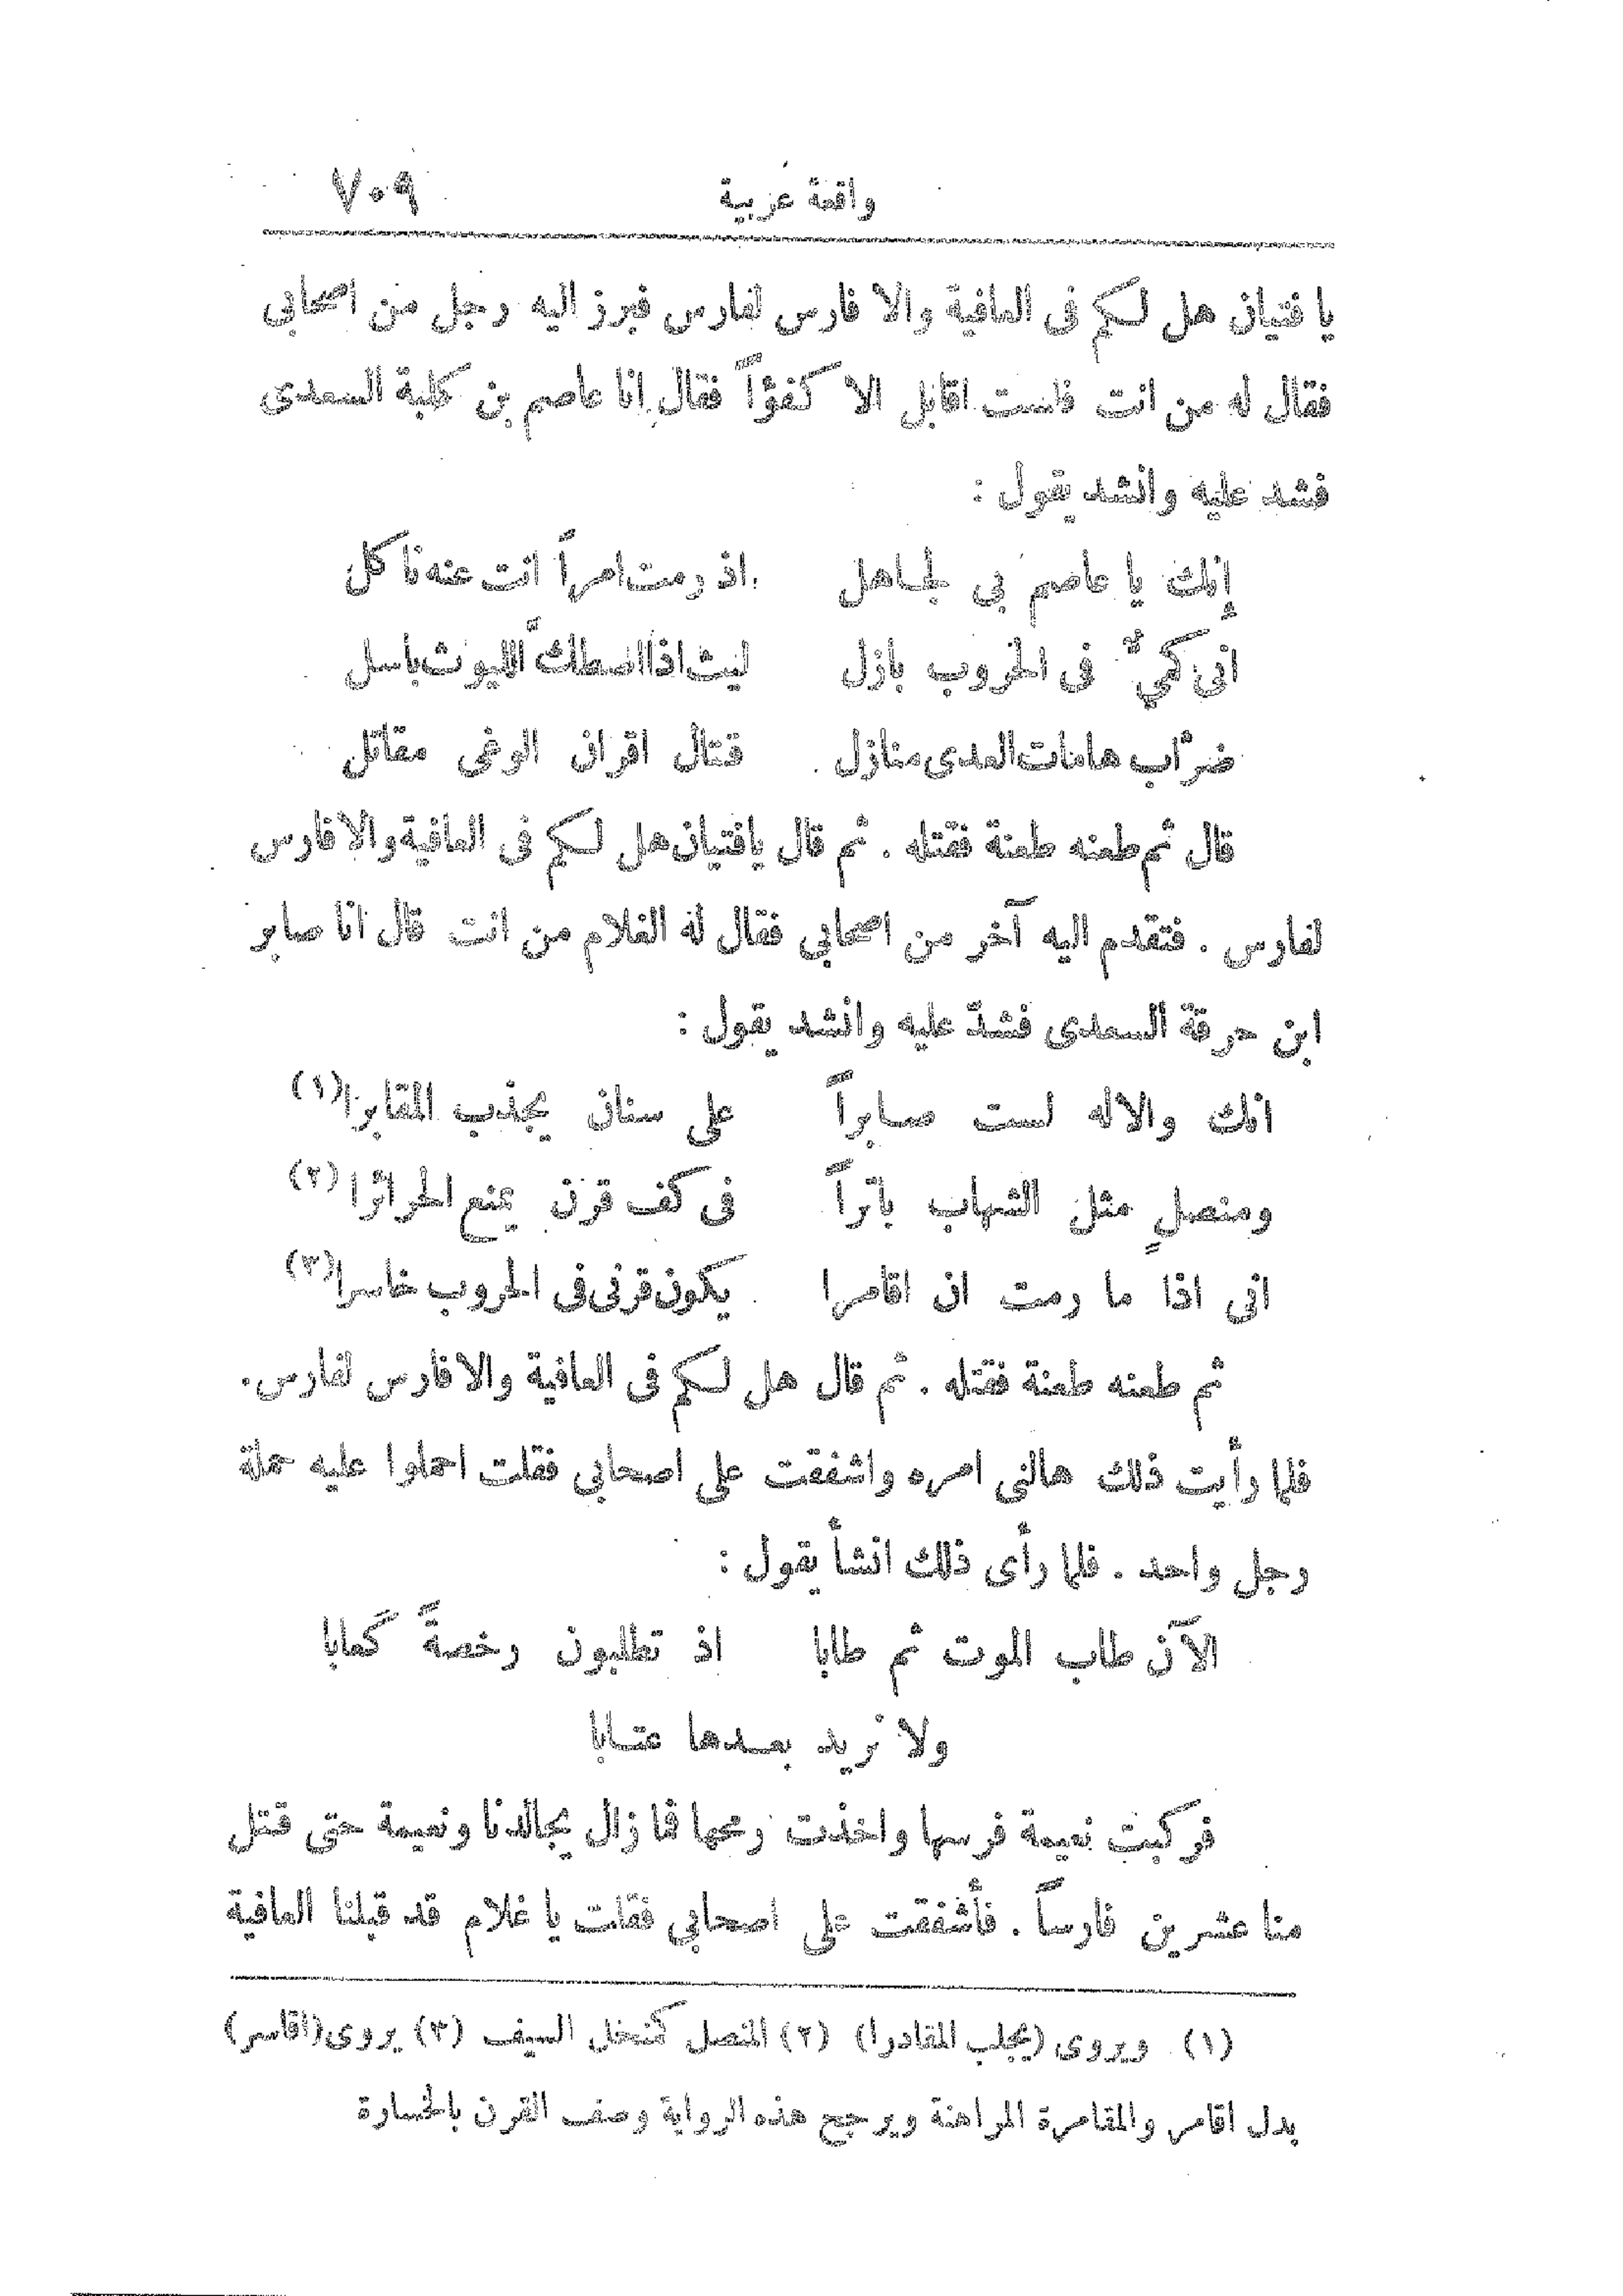 واقعة عربية ٧٠٩
يا فتيان هل لكم فى العافية والا فارس لفارس فبرز اليه رجل من اصحابي
فقال له من انت فلست اقاتل الا كفؤاً فقال انا عاصم بن كلبة السعدى
فشد عليه وانشد يقول :
إنك يا عاصم بي لجاهل اذ رمت امراً انت عنه ناكل
انى كميٌّ فى الحروب بازل ليث اذا اصطكّ الليوث باسل
ضرّاب هامات العدى منازل قتال اقران الوغى مقاتل
قال ثم طعنه طعنة فقتله . ثم قال يافتيان هل لكم فى العافية والا فارس
لفارس . فتقدم اليه آخر من اصحابي فقال له الغلام من انت قال انا صابر
ابن حرقة السعدى فشدّ عليه وانشد يقول :
انك والاله لست صابراً على سنان يجذب المقابرا (١)
ومنصلٍ مثل الشهاب باتراً فى كف قرن يمنع الحرائرا (٢)
انى اذا ما رمت ان اقامرا يكون قرنى فى الحروب خاسرا (٣)
ثم طعنه طعنة فقتله . ثم قال هل لكم فى العافية والا فارس لفارس .
فلما رأيت ذلك هالنى امره واشفقت على اصحابي فقلت احملوا عليه حملة
رجل واحد . فلما رأى ذلك انشأ يقول :
الآن طاب الموت ثم طابا اذ تطلبون رخصةً كعابا
ولا نريد بعدها عتابا
فركبت نعيمة فرسها واخذت رمحها فما زال يجالدنا ونعيمة حتى قتل
منا عشرين فارساً . فأشفقت على اصحابي فقلت يا غلام قد قبلنا العافية
(١) ويروى (يجلب المقادرا) (٢) المنصل كمنخل السيف (٣) يروى (اقاسر)
بدل اقامر والمقامرة المراهنة ويرجح هذه الرواية وصف القرن بالخسارة